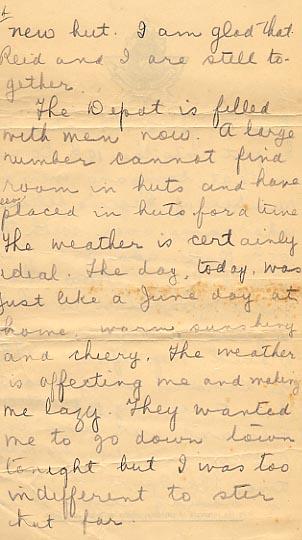 new hut. I am glad that
Reid and I are still to-
gether.
The Depot is filled
with men now. A large
number cannot find
room in huts and have
been
placed in huts for a time
The weather is certainly
ideal. The day, today, was
just like a June day at
home, warm sunshiny
and cheery. The weather
is affecting me and making
me lazy. They wanted
me to go down town
tonight but I was too
indifferent to ster
that far.